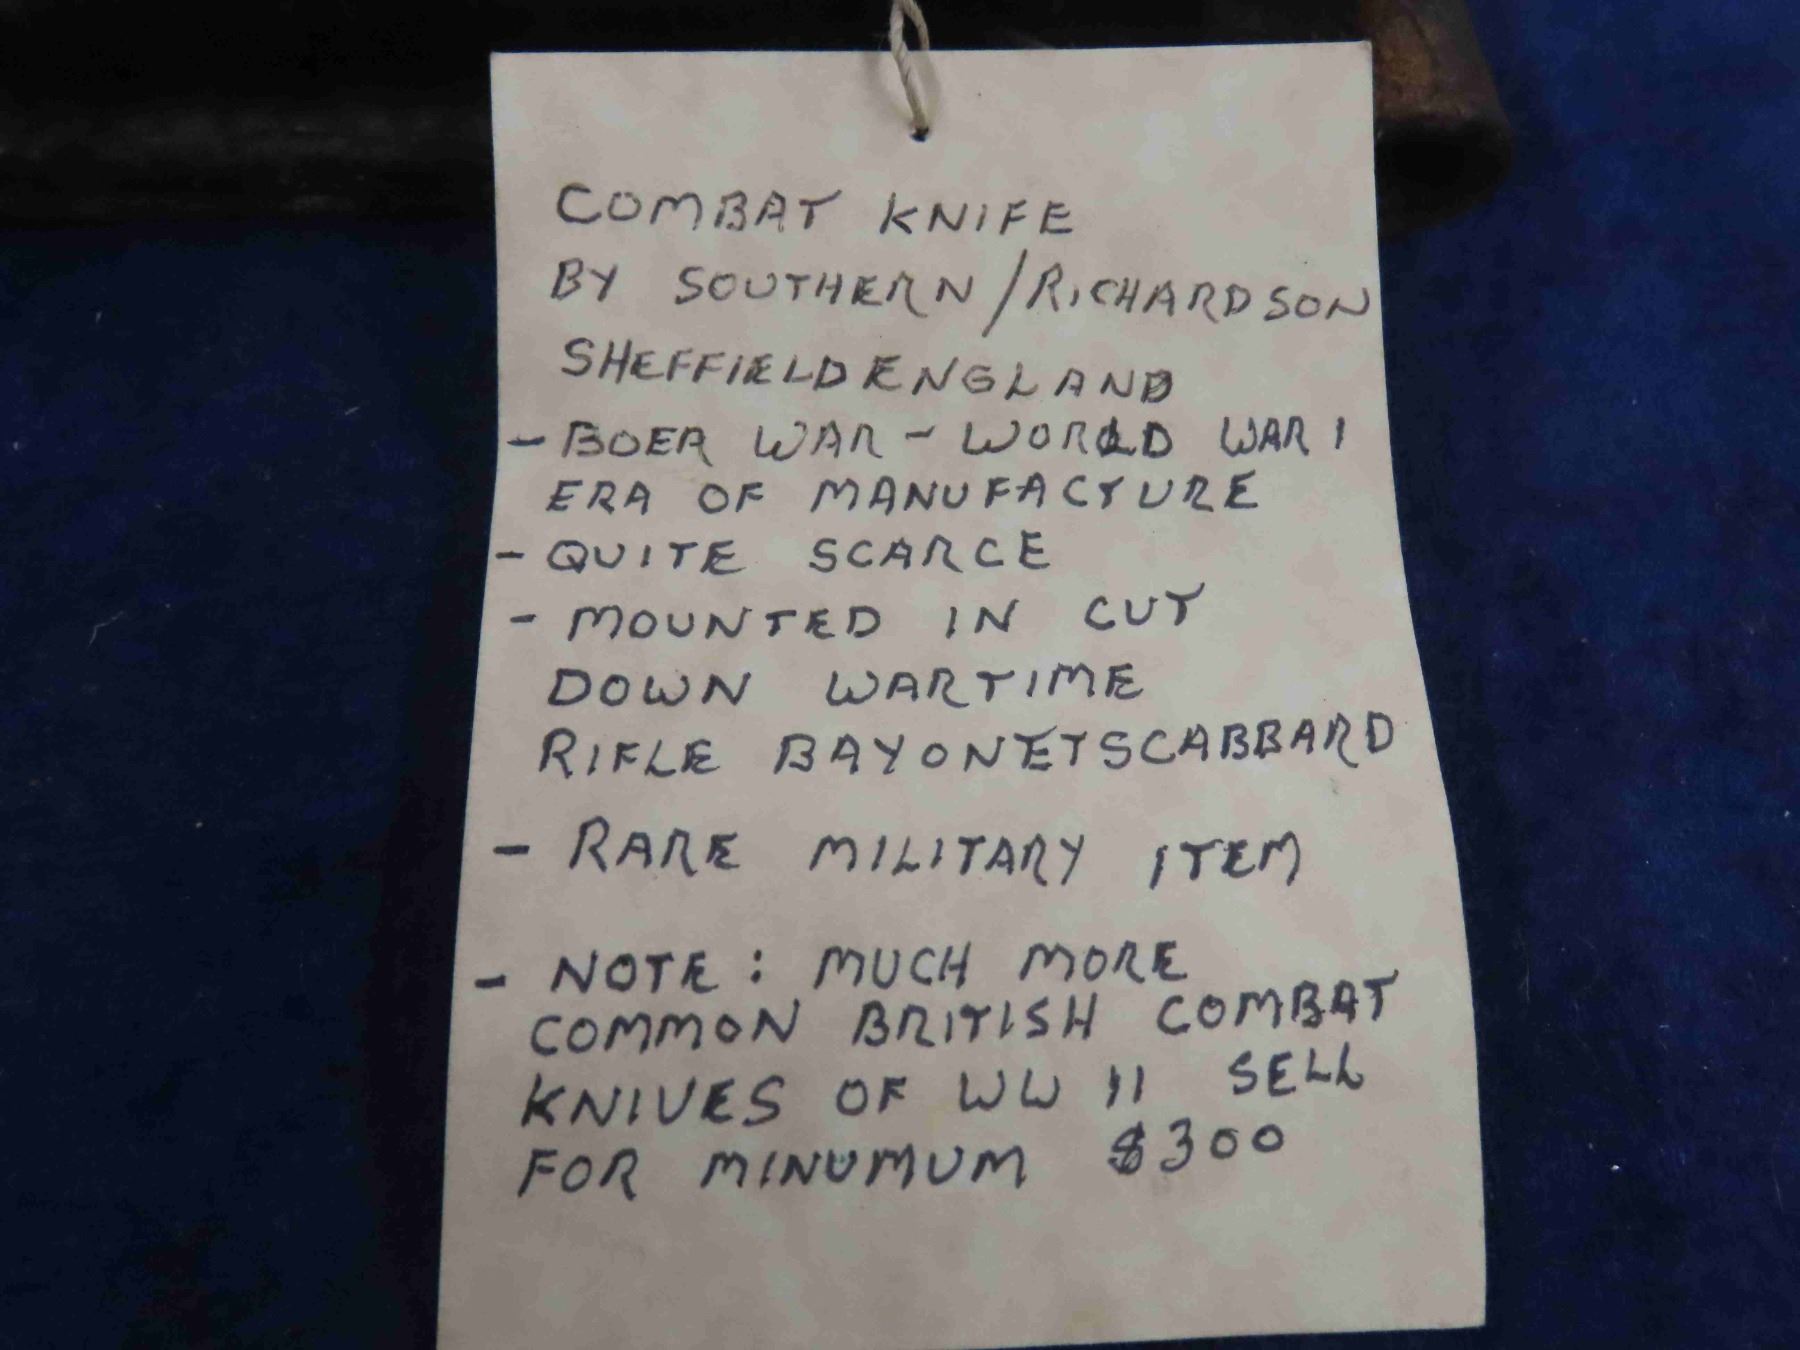 COMBAT KNIFE
BY SOUTHERN/RICHARDSON
SHEFFIELD ENGLAND
- BOER WAR - WORLD WAR I
ERA OF MANUFACTURE
- QUITE SCARCE
- MOUNTED IN CUT
DOWN WARTIME
RIFLE BAYONET SCABBARD
- RARE MILITARY ITEM
- NOTE: MUCH MORE
COMMON BRITISH COMBAT
KNIVES OF WW II SELL
FOR MINUMUM $300